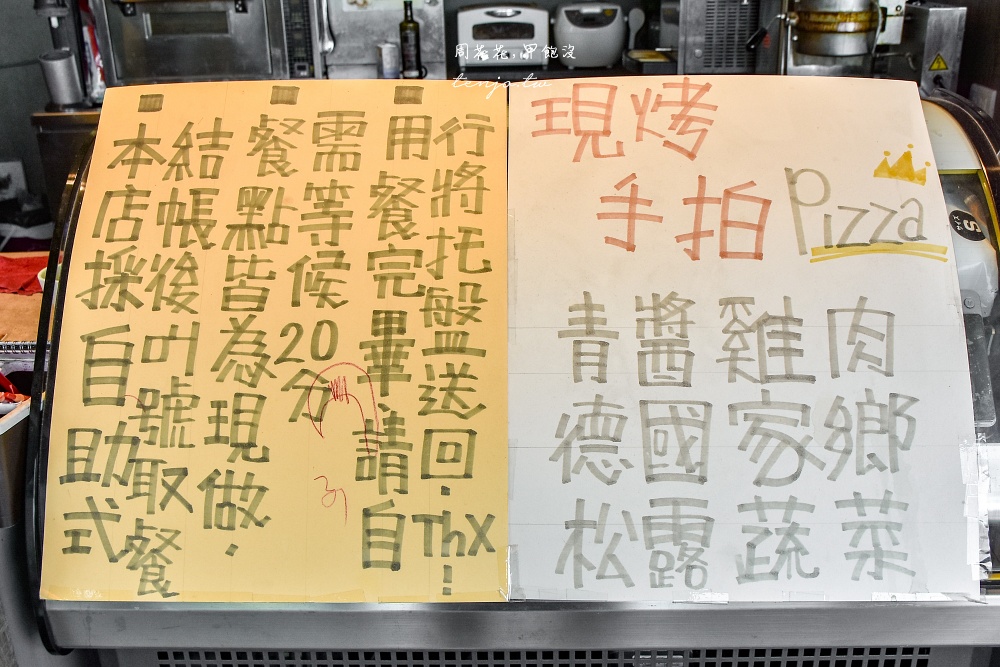 周花花,甲飽沒
tenjo.tw
本店採自助式
結帳後叫號取餐
餐點皆為現做.
需等候20分
用餐完畢請自
行將托盤送回.Thx!
現烤
手拍Pizza
青醬雞肉
德國家鄉
松露蔬菜